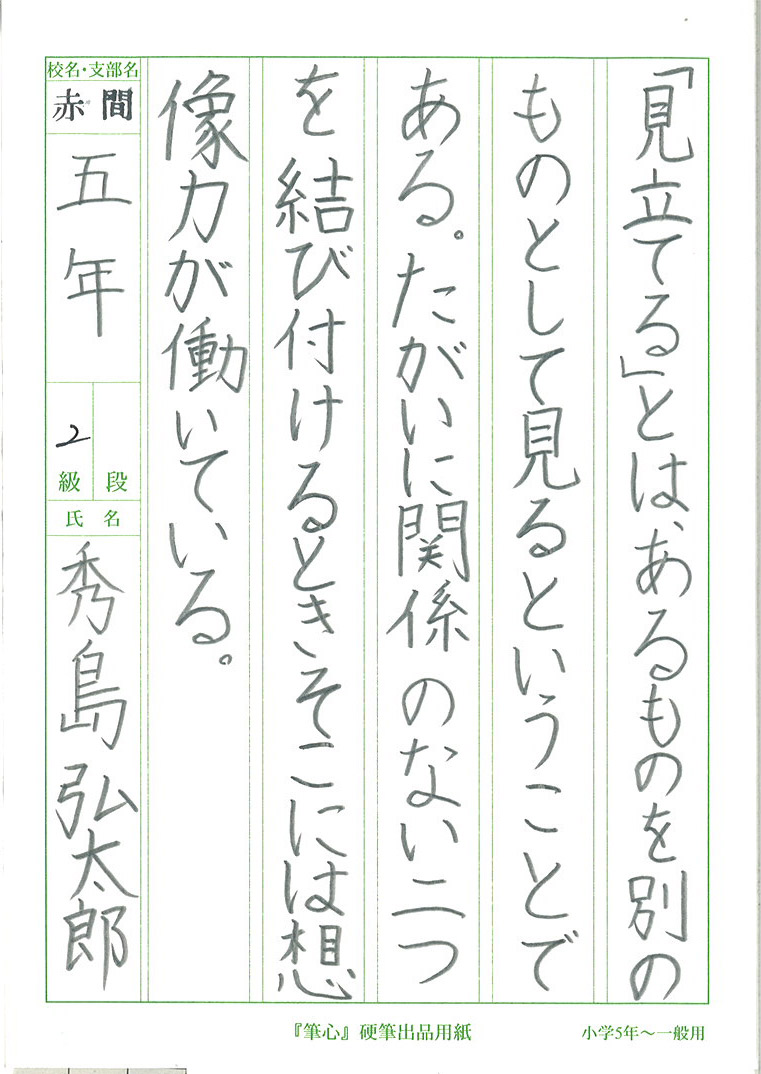 「見立てる」とは、あるものを別の
ものとして見るということで
ある。たがいに関係のない二つ
を結び付けるときそこには想
像力が働いている。
校名・支部名
赤間
五年
段
2級
氏名
秀島弘太郎
『筆心』硬筆出品用紙
小学5年〜一般用